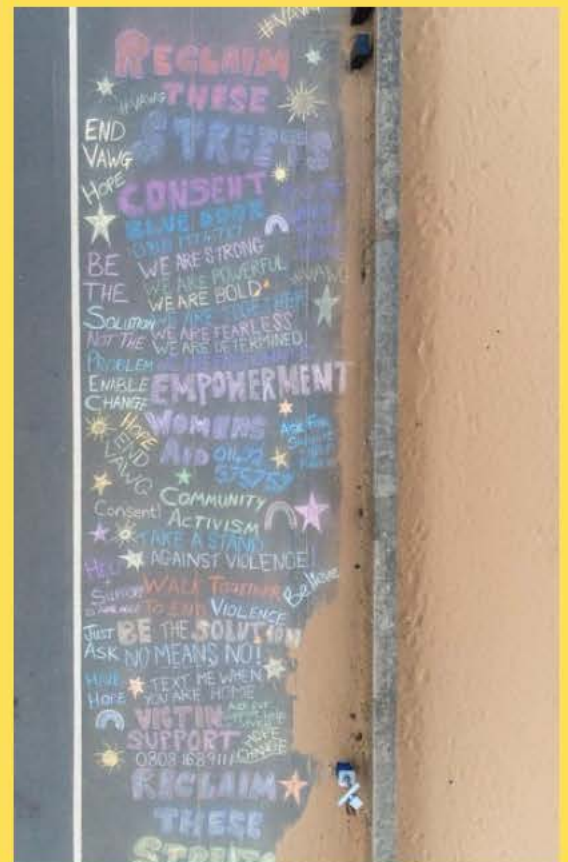 #VAWG
RECLAIM
#VAWG THESE
STREETS
END
VAWG
HOPE
CONSENT
BLUE DOOR
BE
THE
SOLUTION
NOT THE
PROBLEM
ENABLE
CHANGE
WE ARE STRONG
WE ARE POWERFUL
WE ARE BOLD
WE ARE FEARLESS
WE ARE DETERMINED!
#VAWG
EMPOWERMENT
WOMENS
AID
HOPE
END
VAWG
COMMUNITY
ACTIVISM
Consent!
TAKE A STAND
AGAINST VIOLENCE!
WALK TOGETHER
TO END VIOLENCE
Believe
JUST
ASK
BE THE SOLUTION
NO MEANS NO!
HAVE
HOPE
TEXT ME WHEN
YOU ARE HOME
VICTIM
SUPPORT
0808 1689111
HOPE
CHANGE
RECLAIM
THESE
STREETS